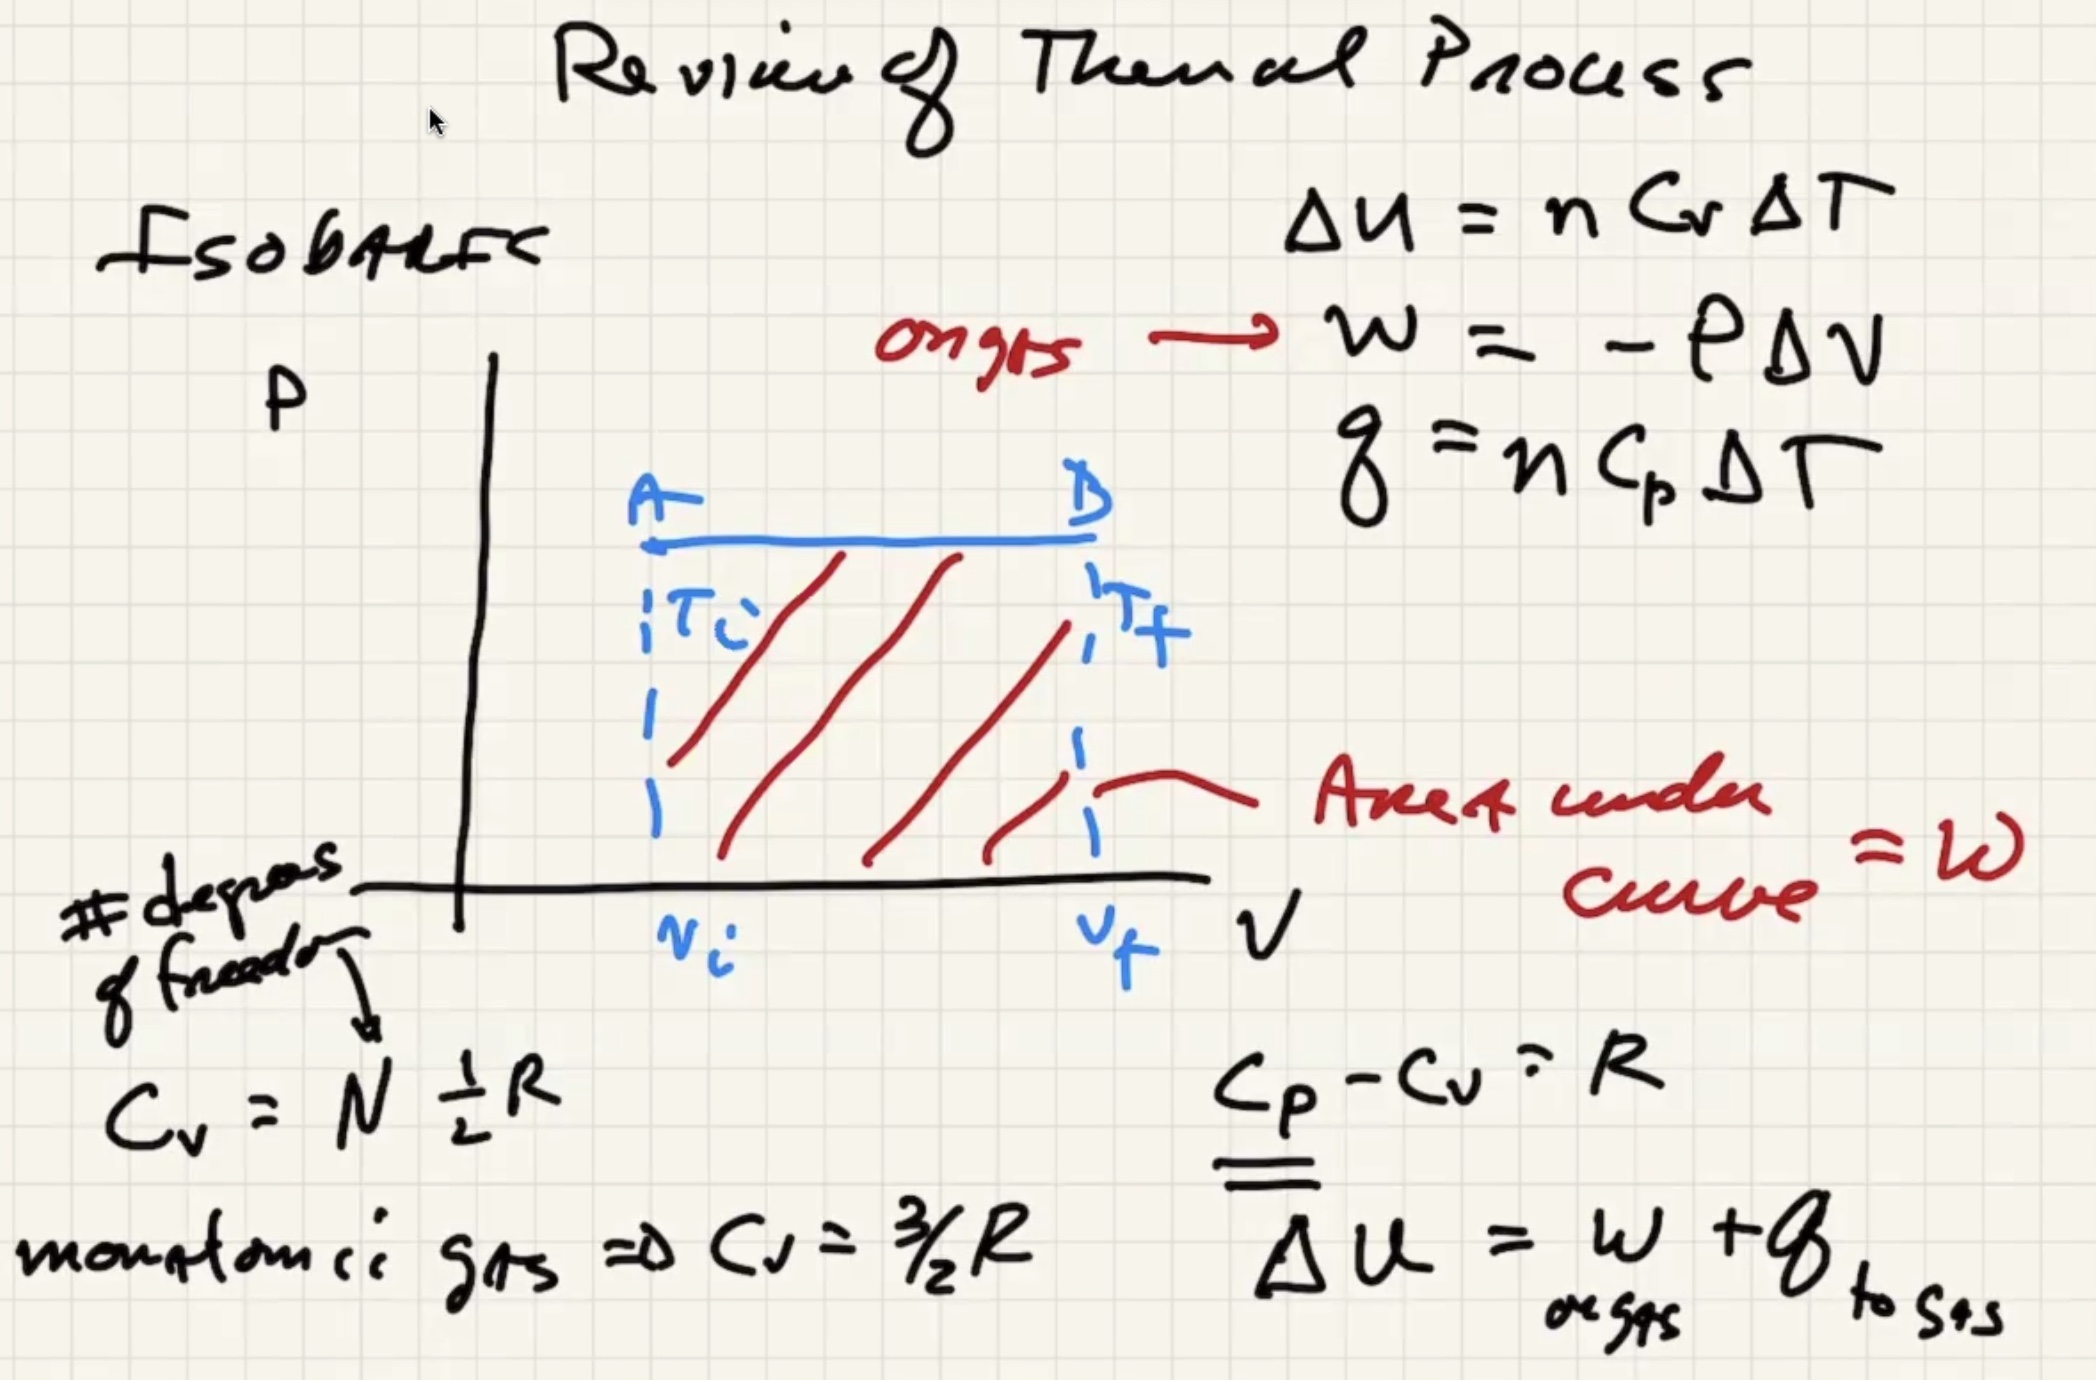 Review of Thermal Process
ISOBARIC
ΔU = n Cv ΔT
on gas → W = - P ΔV
q = n Cp ΔT
P
A B
Ti Tf
Area under
curve = W
# degrees
of freedom
Vi Vf V
Cv = N 1/2 R
Cp - Cv = R
monatomic gas ⇒ Cv = 3/2 R
ΔU = W + q
on gas to gas